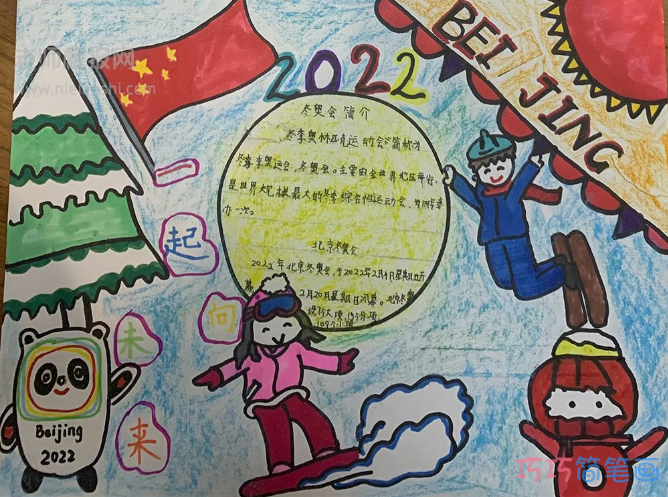 BEIJING
2022
冬奥会简介
冬季奥林匹克运动会简称为
冬季奥运会，冬奥会。主要由全世界地区举行，
是世界规模最大的冬季综合性运动会，每四年举
办一次。
北京冬奥会
2022年北京冬奥会，于2022年2月4日星期五开
幕，2月20日星期日闭幕。北京冬奥
设7大项，15个分项，
109个小项
一
起
向
未
来
Beijing
2022
巧巧简笔画